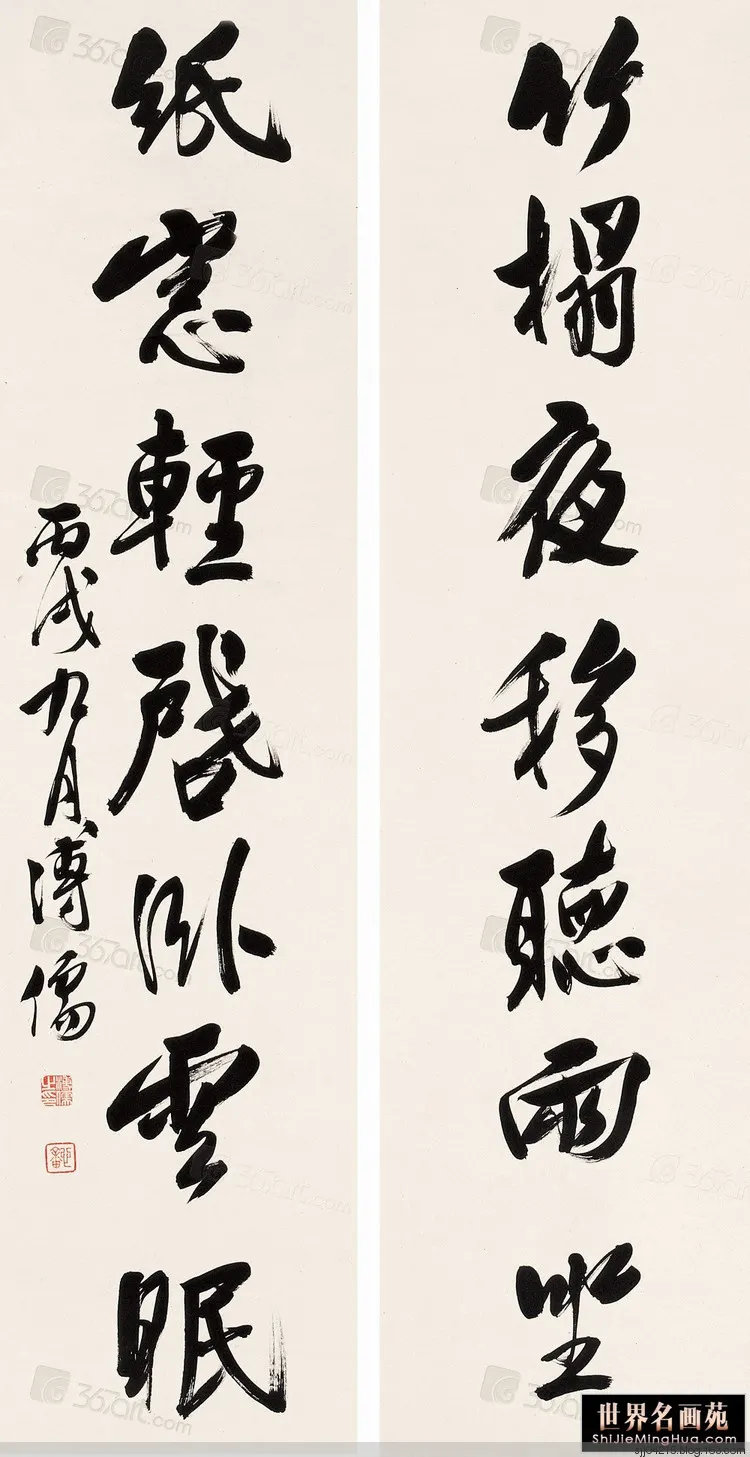 竹榻夜移聽雨坐
紙窓輕啓卧雲眠
丙戌九月溥儒
367art.com
世界名画苑
ShiJieMingHua.com